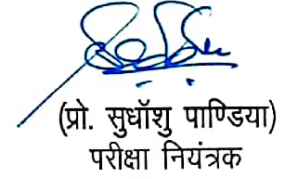 (प्रो. सुधॉशु पाण्डिया)
परीक्षा नियंत्रक